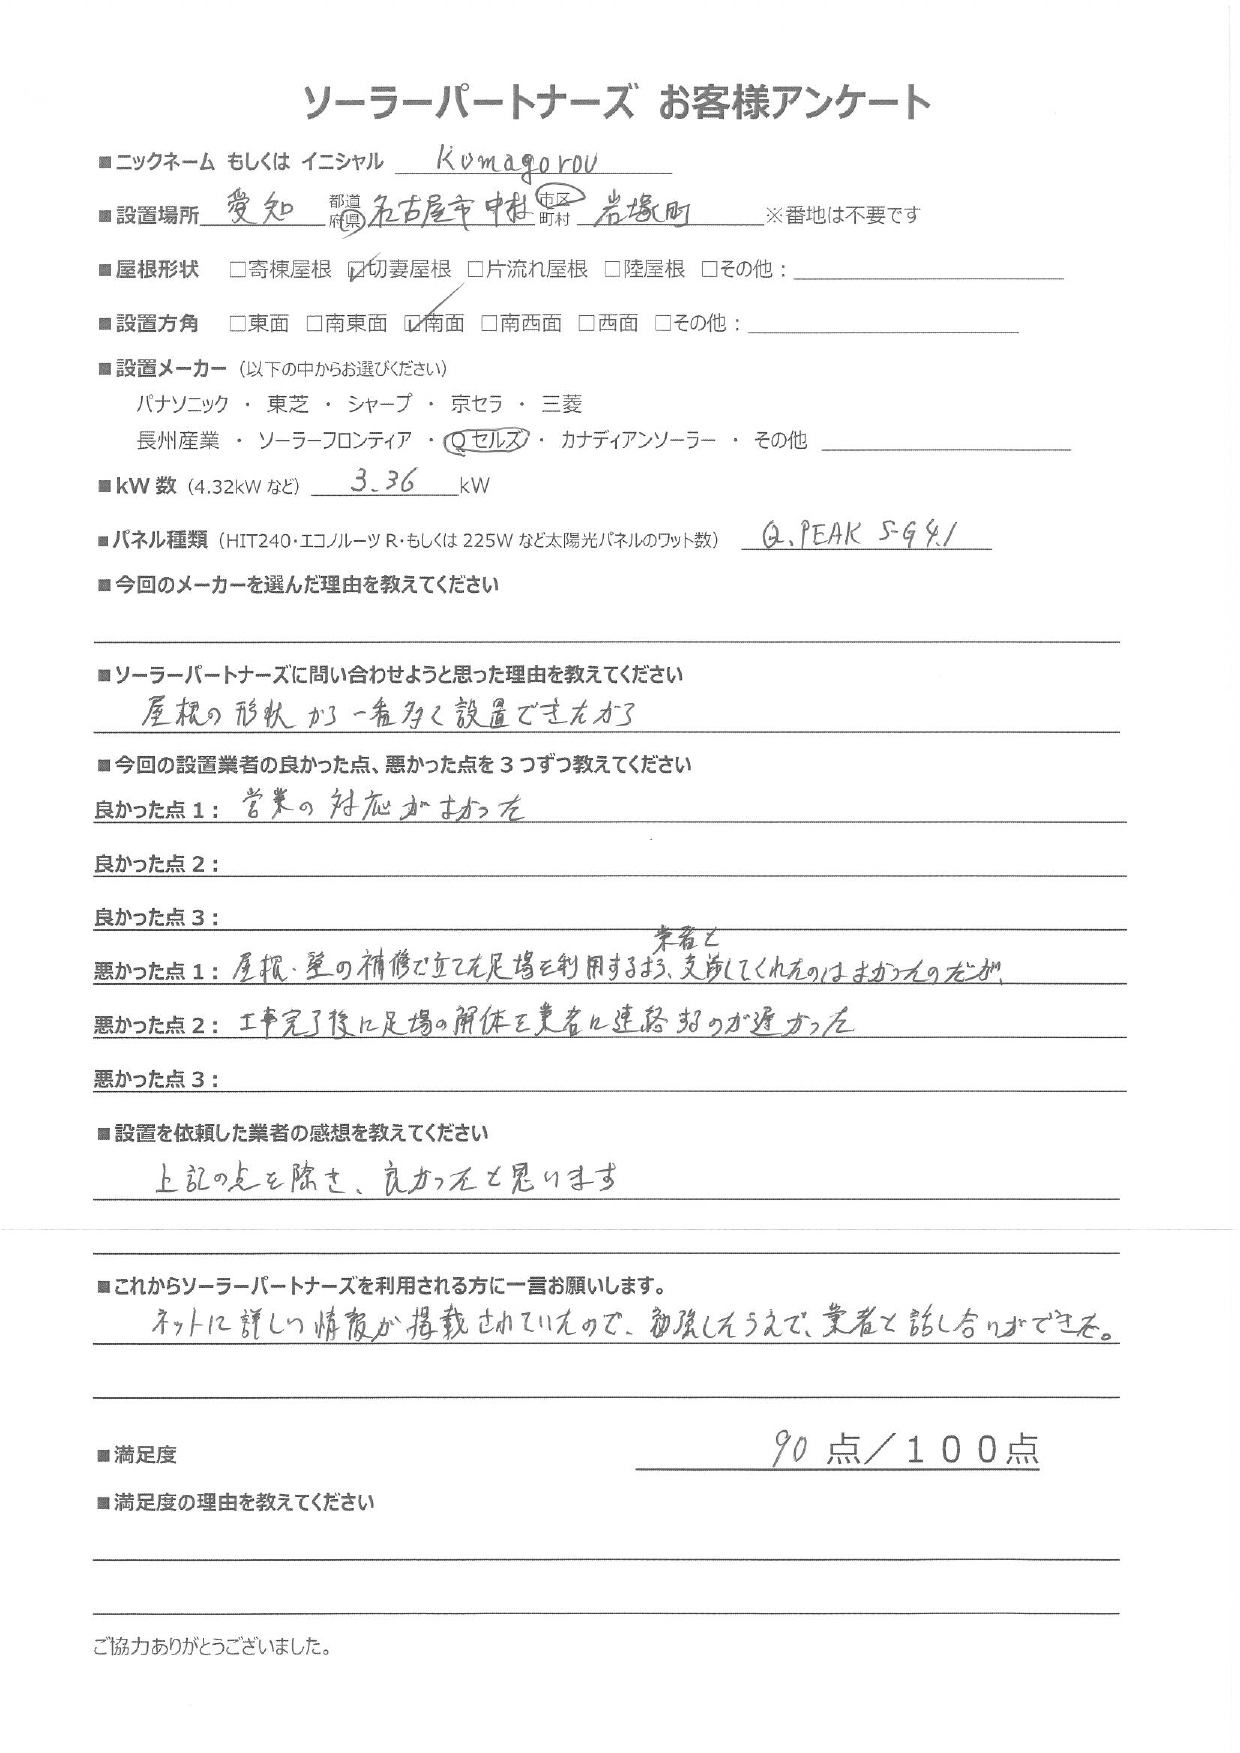 ソーラーパートナーズ お客様アンケート
■ニックネーム もしくは イニシャル Kumagorou
■設置場所 愛知 都道府県 名古屋市中村 市区町村 岩塚町 ※番地は不要です
■屋根形状 □寄棟屋根 ☑切妻屋根 □片流れ屋根 □陸屋根 □その他：
■設置方角 □東面 □南東面 ☑南面 □南西面 □西面 □その他：
■設置メーカー（以下の中からお選びください）
パナソニック ・ 東芝 ・ シャープ ・ 京セラ ・ 三菱
長州産業 ・ ソーラーフロンティア ・ Qセルズ ・ カナディアンソーラー ・ その他
■kW数（4.32kWなど） 3.36 kW
■パネル種類（HIT240・エコノルーツR・もしくは225Wなど太陽光パネルのワット数） Q.PEAK S-G4.1
■今回のメーカーを選んだ理由を教えてください
■ソーラーパートナーズに問い合わせようと思った理由を教えてください
屋根の形状から一番多く設置できたから
■今回の設置業者の良かった点、悪かった点を3つずつ教えてください
良かった点1： 営業の対応がよかった
良かった点2：
良かった点3：
業者と
悪かった点1： 屋根・壁の補修で立てた足場を利用するよう、交渉してくれたのはよかったのだが、
悪かった点2： 工事完了後に足場の解体を業者に連絡するのが遅かった
悪かった点3：
■設置を依頼した業者の感想を教えてください
上記の点を除き、良かったと思います
■これからソーラーパートナーズを利用される方に一言お願いします。
ネットに詳しい情報が掲載されていたので、勉強したうえで、業者と話し合いができた。
■満足度 90 点／１００点
■満足度の理由を教えてください
ご協力ありがとうございました。